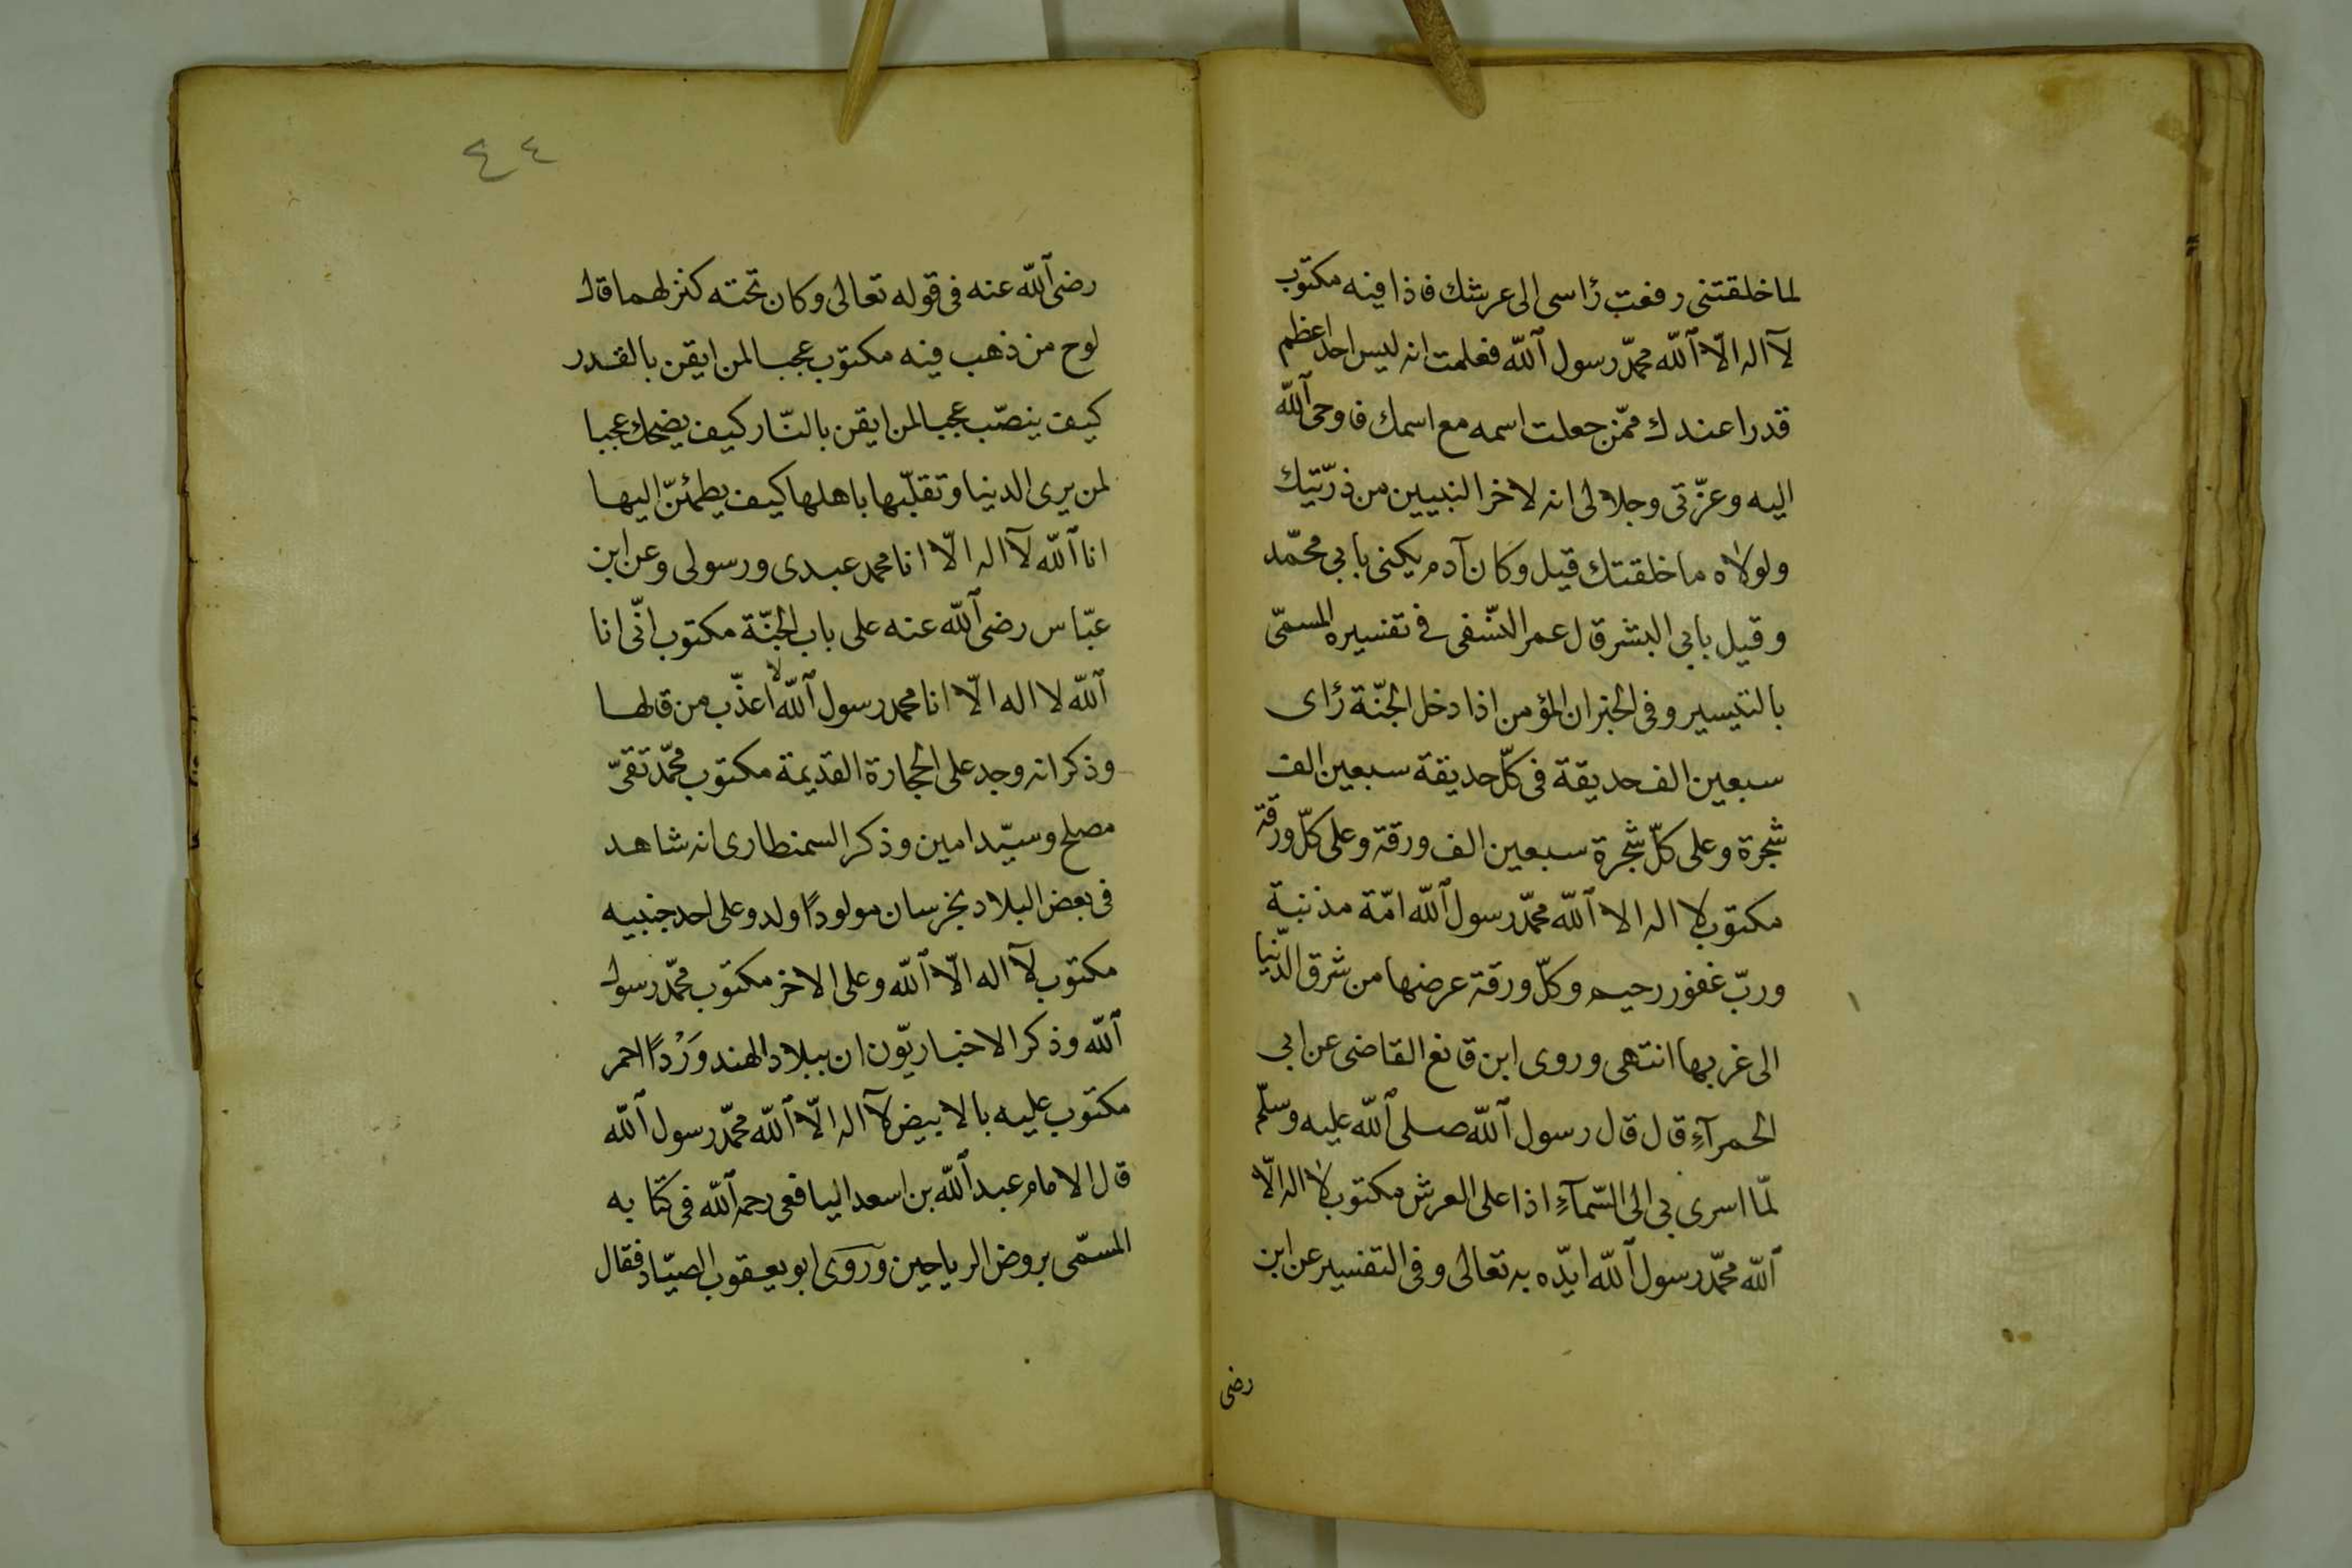 لما خلقتنى رفعت رأسى الى عرشك فاذا فيه مكتوب
لآ اله الّا الله محمّد رسول الله فعلمت انه ليس احد اعظم
قدرا عندك ممّن جعلت اسمه مع اسمك فاوحى الله
اليه وعزّتى وجلالى انه لاخر النبيين من ذرّيتك
ولولاه ما خلقتك قيل وكان آدم يكنى بابي محمّد
وقيل بابى البشر قال عمر النّسفى في تفسيره المسمّى
بالتيسير وفى الخبر ان المؤمن اذا دخل الجنّة رأى
سبعين الف حديقة فى كلّ حديقة سبعين الف
شجرة وعلى كلّ شجرة سبعين الف ورقة وعلى كلّ ورقة
مكتوب لا اله الا الله محمّد رسول الله امّة مذنبة
وربّ غفور رحيم وكلّ ورقة عرضها من شرق الدّنيا
الى غربها انتهى وروى ابن قانع القاضى عن ابى
الحمرآءِ قال قال رسول الله صلى الله عليه وسلّم
لمّا اسرى بى الى السّمآءِ اذا على العرش مكتوب لا اله الّا
الله محمّد رسول الله ايّده به تعالى وفى التفسير عن ابن
رضى
٤٤
رضى الله عنه فى قوله تعالى وكان تحته كنز لهما قال
لوح من ذهب فيه مكتوب عجبا لمن ايقن بالقدر
كيف ينصّب عجبا لمن ايقن بالنّار كيف يضحك عجبا
لمن يرى الدنيا وتقلّبها باهلها كيف يطمئنّ اليها
انا الله لآ اله الّا انا محمد عبدى ورسولى وعن ابن
عبّاس رضى الله عنه على باب الجنّة مكتوب انّى انا
الله لا اله الّا انا محمد رسول الله لا اعذّب من قالها
وذكر انه وجد على الحجارة القديمة مكتوب محمّد تقىّ
مصلح وسيّد امين وذكر السمنطارى انه شاهد
فى بعض البلاد بخرسان مولودًا ولد وعلى احد جنبيه
مكتوب لآ اله الّا الله وعلى الاخر مكتوب محمّد رسول
الله وذكر الاخباريّون ان ببلاد الهند وَرْدًا احمر
مكتوب عليه بالابيض لآ اله الّا الله محمّد رسول الله
قال الامام عبد الله بن اسعد اليافعى رحمه الله فى كتابه
المسمّى بروض الرياحين وروى ابو يعقوب الصيّاد فقال